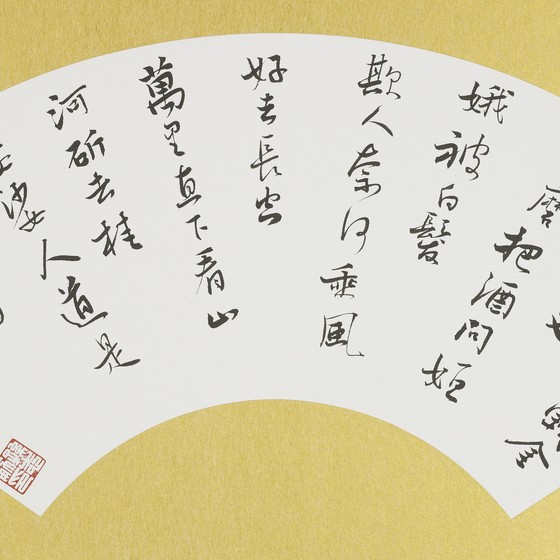 金
磨把酒問姮
娥被白髮
欺人奈何乘風
好去長空
萬里直下看山
河斫去桂
娑人道是